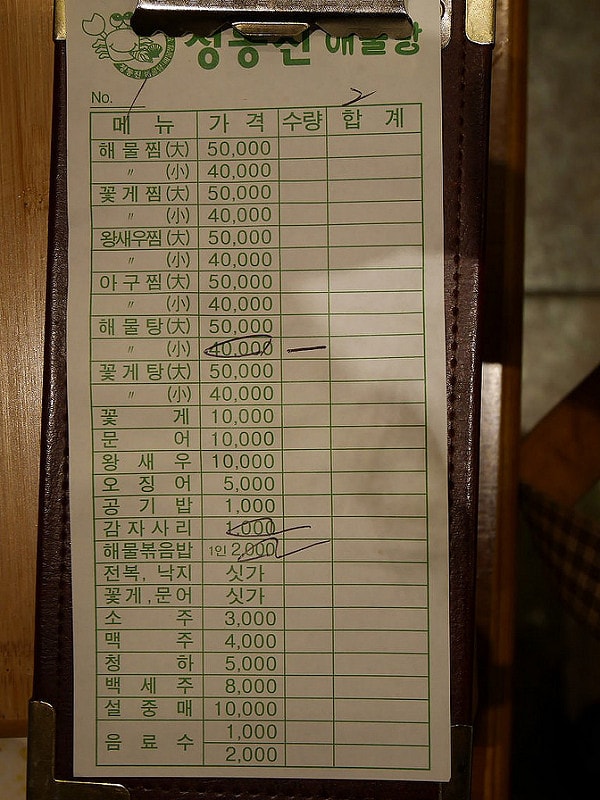 정동진 해물탕
No.
메 뉴 가 격 수량 합 계
해 물 찜 (大) 50,000
〃 (小) 40,000
꽃 게 찜 (大) 50,000
〃 (小) 40,000
왕새우찜 (大) 50,000
〃 (小) 40,000
아 구 찜 (大) 50,000
〃 (小) 40,000
해 물 탕 (大) 50,000
〃 (小) 40,000
꽃 게 탕 (大) 50,000
〃 (小) 40,000
꽃 게 10,000
문 어 10,000
왕 새 우 10,000
오 징 어 5,000
공 기 밥 1,000
감 자 사 리 1,000
해물볶음밥 1인 2,000
전복, 낙지 싯가
꽃게, 문어 싯가
소 주 3,000
맥 주 4,000
청 하 5,000
백 세 주 8,000
설 중 매 10,000
음 료 수 1,000
2,000